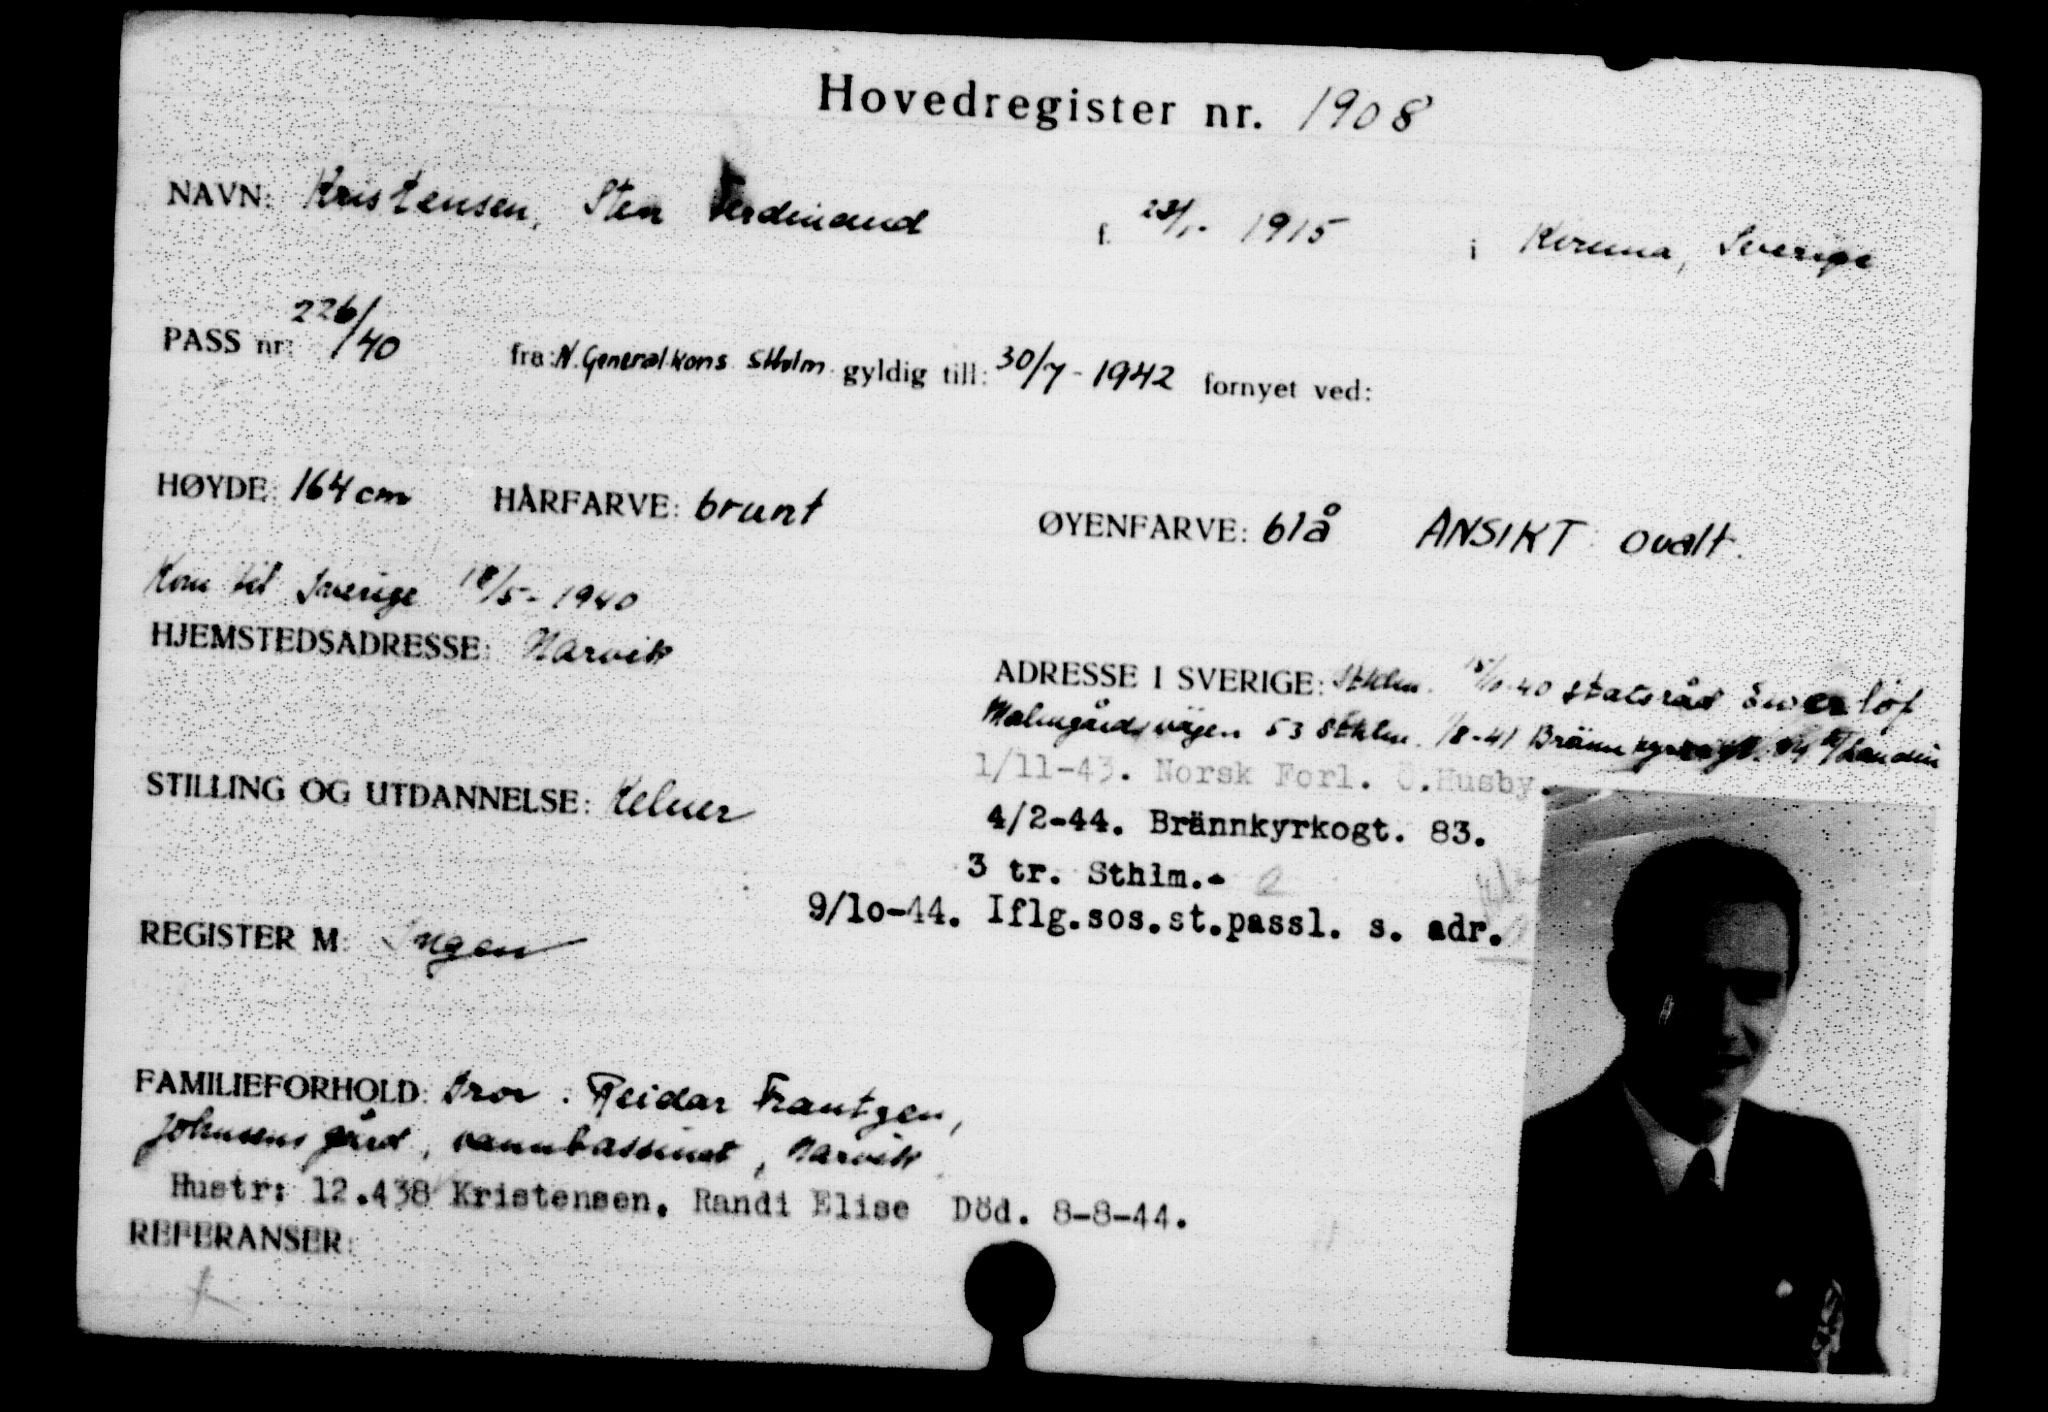 Hovedregister nr. 1908
NAVN: Kristensen, Sten Ferdinand f. 23/1- 1915 i Kiruna, Sverige
PASS nr: 226/40 fra: N. Generalkons Stholm. gyldig till: 30/7-1942 fornyet ved:
HØYDE: 164 cm HÅRFARVE: brunt ØYENFARVE: blå ANSIKT: ovalt.
Kom til Sverige 18/5-1940
HJEMSTEDSADRESSE: Narvik
ADRESSE I SVERIGE: Sthlm. 15/10-40 statsråd Ewerløf
Malmgårdsvägen 53 Sthlm. 1/8-41
1/11-43. Norsk Forl. O.Husby.
STILLING OG UTDANNELSE: Kelner
4/2-44. Brännkyrkogt. 83.
3 tr. Sthlm.-
9/10-44. Iflg.sos.st.passl. s. adr.
REGISTER M: Ingen
FAMILIEFORHOLD: Bror: Reidar Frantzen,
Johnsens gård, vannbassinet, Narvik
Hustr: 12.438 Kristensen. Randi Elise Död. 8-8-44.
REFERANSER: